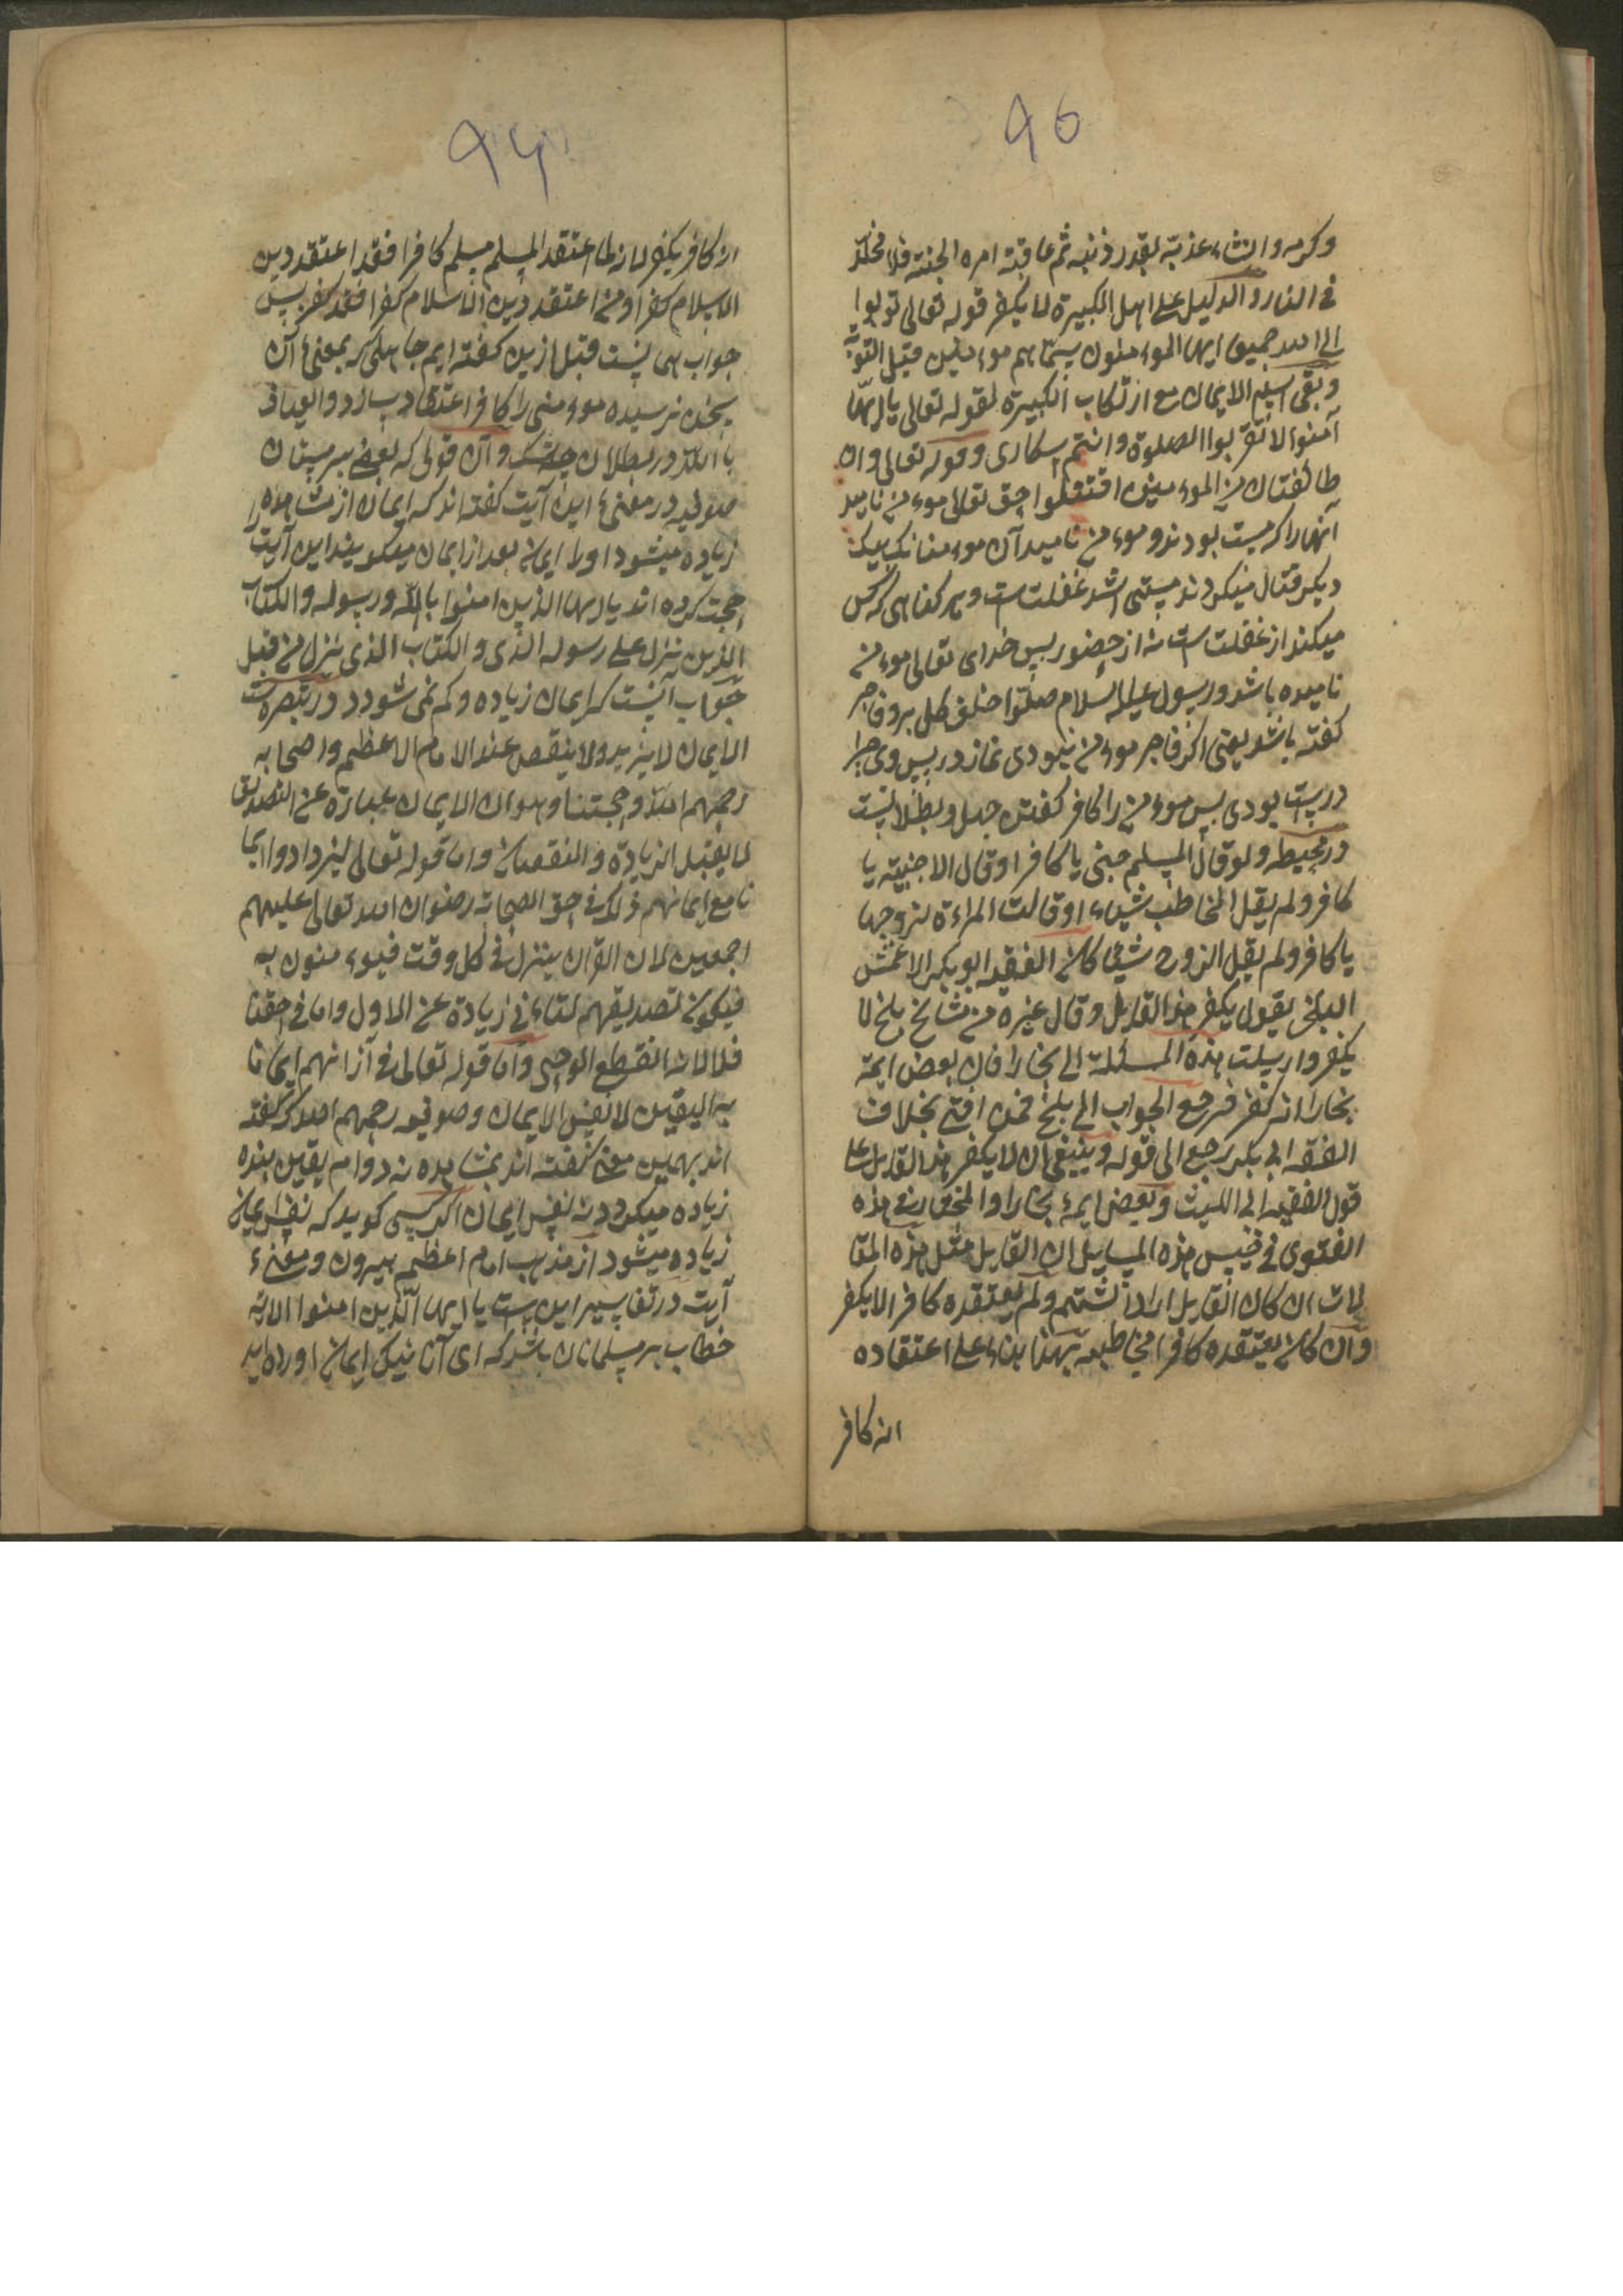 ۹۵
وکرمه وان شاء عذبه بقدر ذنبه ثم عاقبة امره الجنة فلا مخلد
فی النار والدلیل علی اهل الکبیرة لا یکفر قوله تعالی توبوا
الی الله جمیعا ایها الموءمنون سماهم موءمنین قبل التوبة
وبقی اسم الایمان مع ارتکاب الکبیرة لقوله تعالی یا ایها
آمنوا لا تقربوا الصلوة وانتم سکاری وقوله تعالی وان
طائفتان من الموءمنین اقتتلوا حق تعالی موءمن نامید
آنهارا که مست بودند و موءمن نامید آن موءمنانکه بیک
دیکر قتال میکردند مستی اشد غفلت است و هر کناهی که کس
میکند از غفلت است نه از حضور پس خدای تعالی موءمن
نامیده باشد و رسول علیه السلام صلوا خلف کل بر وفاجر
کفته باشد یعنی اکر فاجر موءمن نبودی نماز در پس وی چرا
درست بودی پس موءمن را کافر کفتن جهل و بطلانست
در محیطه ولو قال المسلم جنی یا کافر او قال الاجنبیة یا
کافر ولم یقل المخاطب شیاء او قالت المراءة لزوجها
یا کافر ولم یقل الزوج شیئا کان الفقیه ابو بکر الاعمش
البلخی یقول یکفر هذا القایل وقال غیره من مشایخ بلخ لا
یکفر وارسلت هذه المسئلة الی بخارا فان بعض ایمة
بخارا انه کفر فرجع الجواب الی بلخ فمن افتی بخلاف
الفقه ابی بکر رجع الی قوله وینبغی ان لا یکفر هذا القایل علی
قول الفقیه ابی اللیث وبعض ایمهٔ بخارا والمختار فی هذه
الفتوی فی جنس هذه المسایل ان القایل مثل هذه المقا
لات ان کان القایل اراد الشتم ولم یعتقده کافر الا یکفر
وان کان یعتقده کافرا فخاطبه بهذا بناء علی اعتقاده
انه کافر
۹۶
انه کافر یکفر لانه لما اعتقد المسلم مسلم کافرا فقد اعتقد دین
الاسلام کفرا ومن اعتقد دین الاسلام کفرا فقد کفر پس
جواب همانست قبل ازین کفته ایم جاهلی که بمعنیٔ آن
سخن نرسیده موءمنی را کافر اعتقاد سازد والعیاذ
بالله در بطلان چه شک و آن قولی که بعضی سرمستان
صوفیه در معنیٔ این آیت کفته اند که ایمان از مشاهده
زیاده میشود اورا ایمان بعد از ایمان میکویند این آیت
حجت کرده اند یا ایها الذین امنوا بالله ورسوله والکتاب
الذین نزل علی رسوله الذی والکتاب الذی نزل من قبل
جواب آنست که ایمان زیاده وکم نمی شود در تبصره است
الایمان لا یزید ولا ینقص عند الامام الاعظم واصحابه
رحمهم الله وحجتنا وهو ان الایمان عبارة عن التصدیق
لا یقبل الزیادة والنقصان واما قوله تعالی لیزدادوا ایما
نا مع ایمانهم ذلک فی حق الصحابة رضوان الله تعالی علیهم
اجمعین لان القرآن ینزل فی کل وقت فیوءمنون به
فیکون تصدیقهم للثانی زیادة عن الاول واما فی حقنا
فلا لانه انقطع الوحی واما قوله تعالی فزادتهم ایمانا
به الیقین لا نفس الایمان وصوفیه رحمهم الله که کفته
اند بهمین معنی کفته اند بمشاهده نه دوام یقین بنده
زیاده میکردد نه نفس ایمان اکر کسی کوید که نفس ایمان
زیاده میشود از مذهب امام اعظم بیرون ومعنیٔ
آیت در تفاسیر این است یا ایها الذین امنوا الایة
خطاب بر مسلمانان باشد که ای آنانیکه ایمان آورده اید